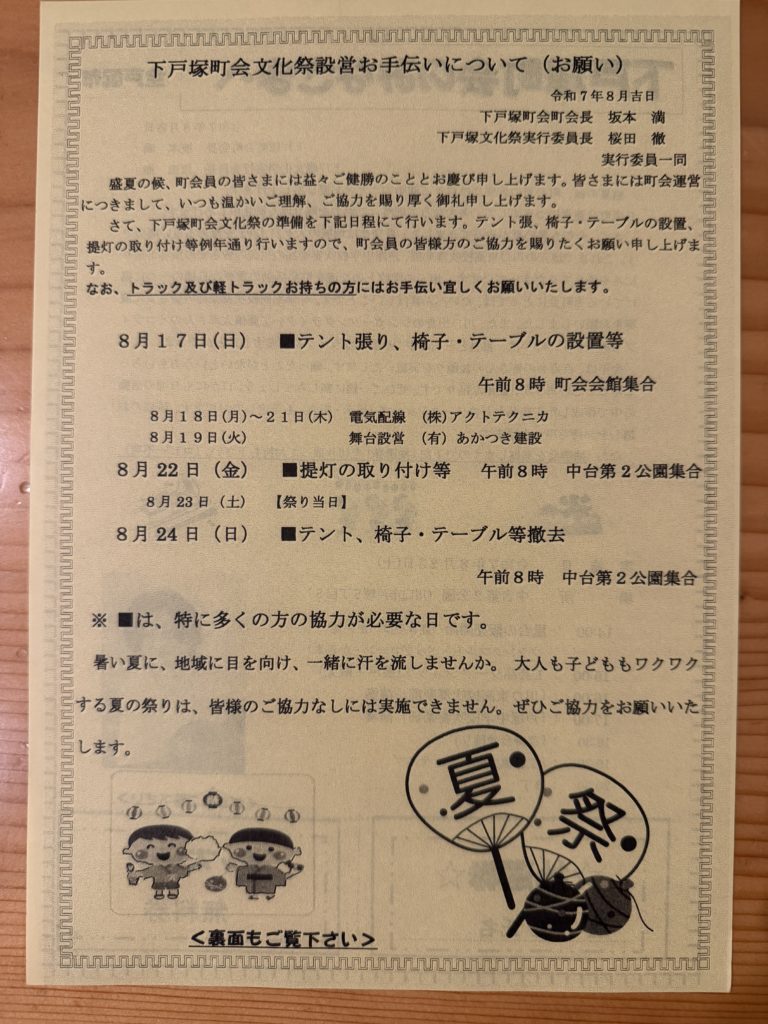 下戸塚町会文化祭設営お手伝いについて（お願い）
令和７年８月吉日
下戸塚町会町会長　坂本　満
下戸塚文化祭実行委員長　桜田　徹
実行委員一同
盛夏の候、町会員の皆さまには益々ご健勝のこととお慶び申し上げます。皆さまには町会運営
につきまして、いつも温かいご理解、ご協力を賜り厚く御礼申し上げます。
さて、下戸塚町会文化祭の準備を下記日程にて行います。テント張、椅子・テーブルの設置、
提灯の取り付け等例年通り行いますので、町会員の皆様方のご協力を賜りたくお願い申し上げま
す。
なお、トラック及び軽トラックお持ちの方にはお手伝い宜しくお願いいたします。
８月１７日(日)　■テント張り、椅子・テーブルの設置等
午前８時 町会会館集合
８月１８日(月)～２１日(木)　電気配線　(株)アクトテクニカ
８月１９日(火)　舞台設営　(有) あかつき建設
８月 22 日（金）　■提灯の取り付け等　午前８時　中台第２公園集合
８月 23 日（土）　【祭り当日】
８月 24 日（日）　■テント、椅子・テーブル等撤去
午前８時　中台第２公園集合
※ ■は、特に多くの方の協力が必要な日です。
暑い夏に、地域に目を向け、一緒に汗を流しませんか。 大人も子どももワクワク
する夏の祭りは、皆様のご協力なしには実施できません。ぜひご協力をお願いいた
します。
夏
祭
＜裏面もご覧下さい＞